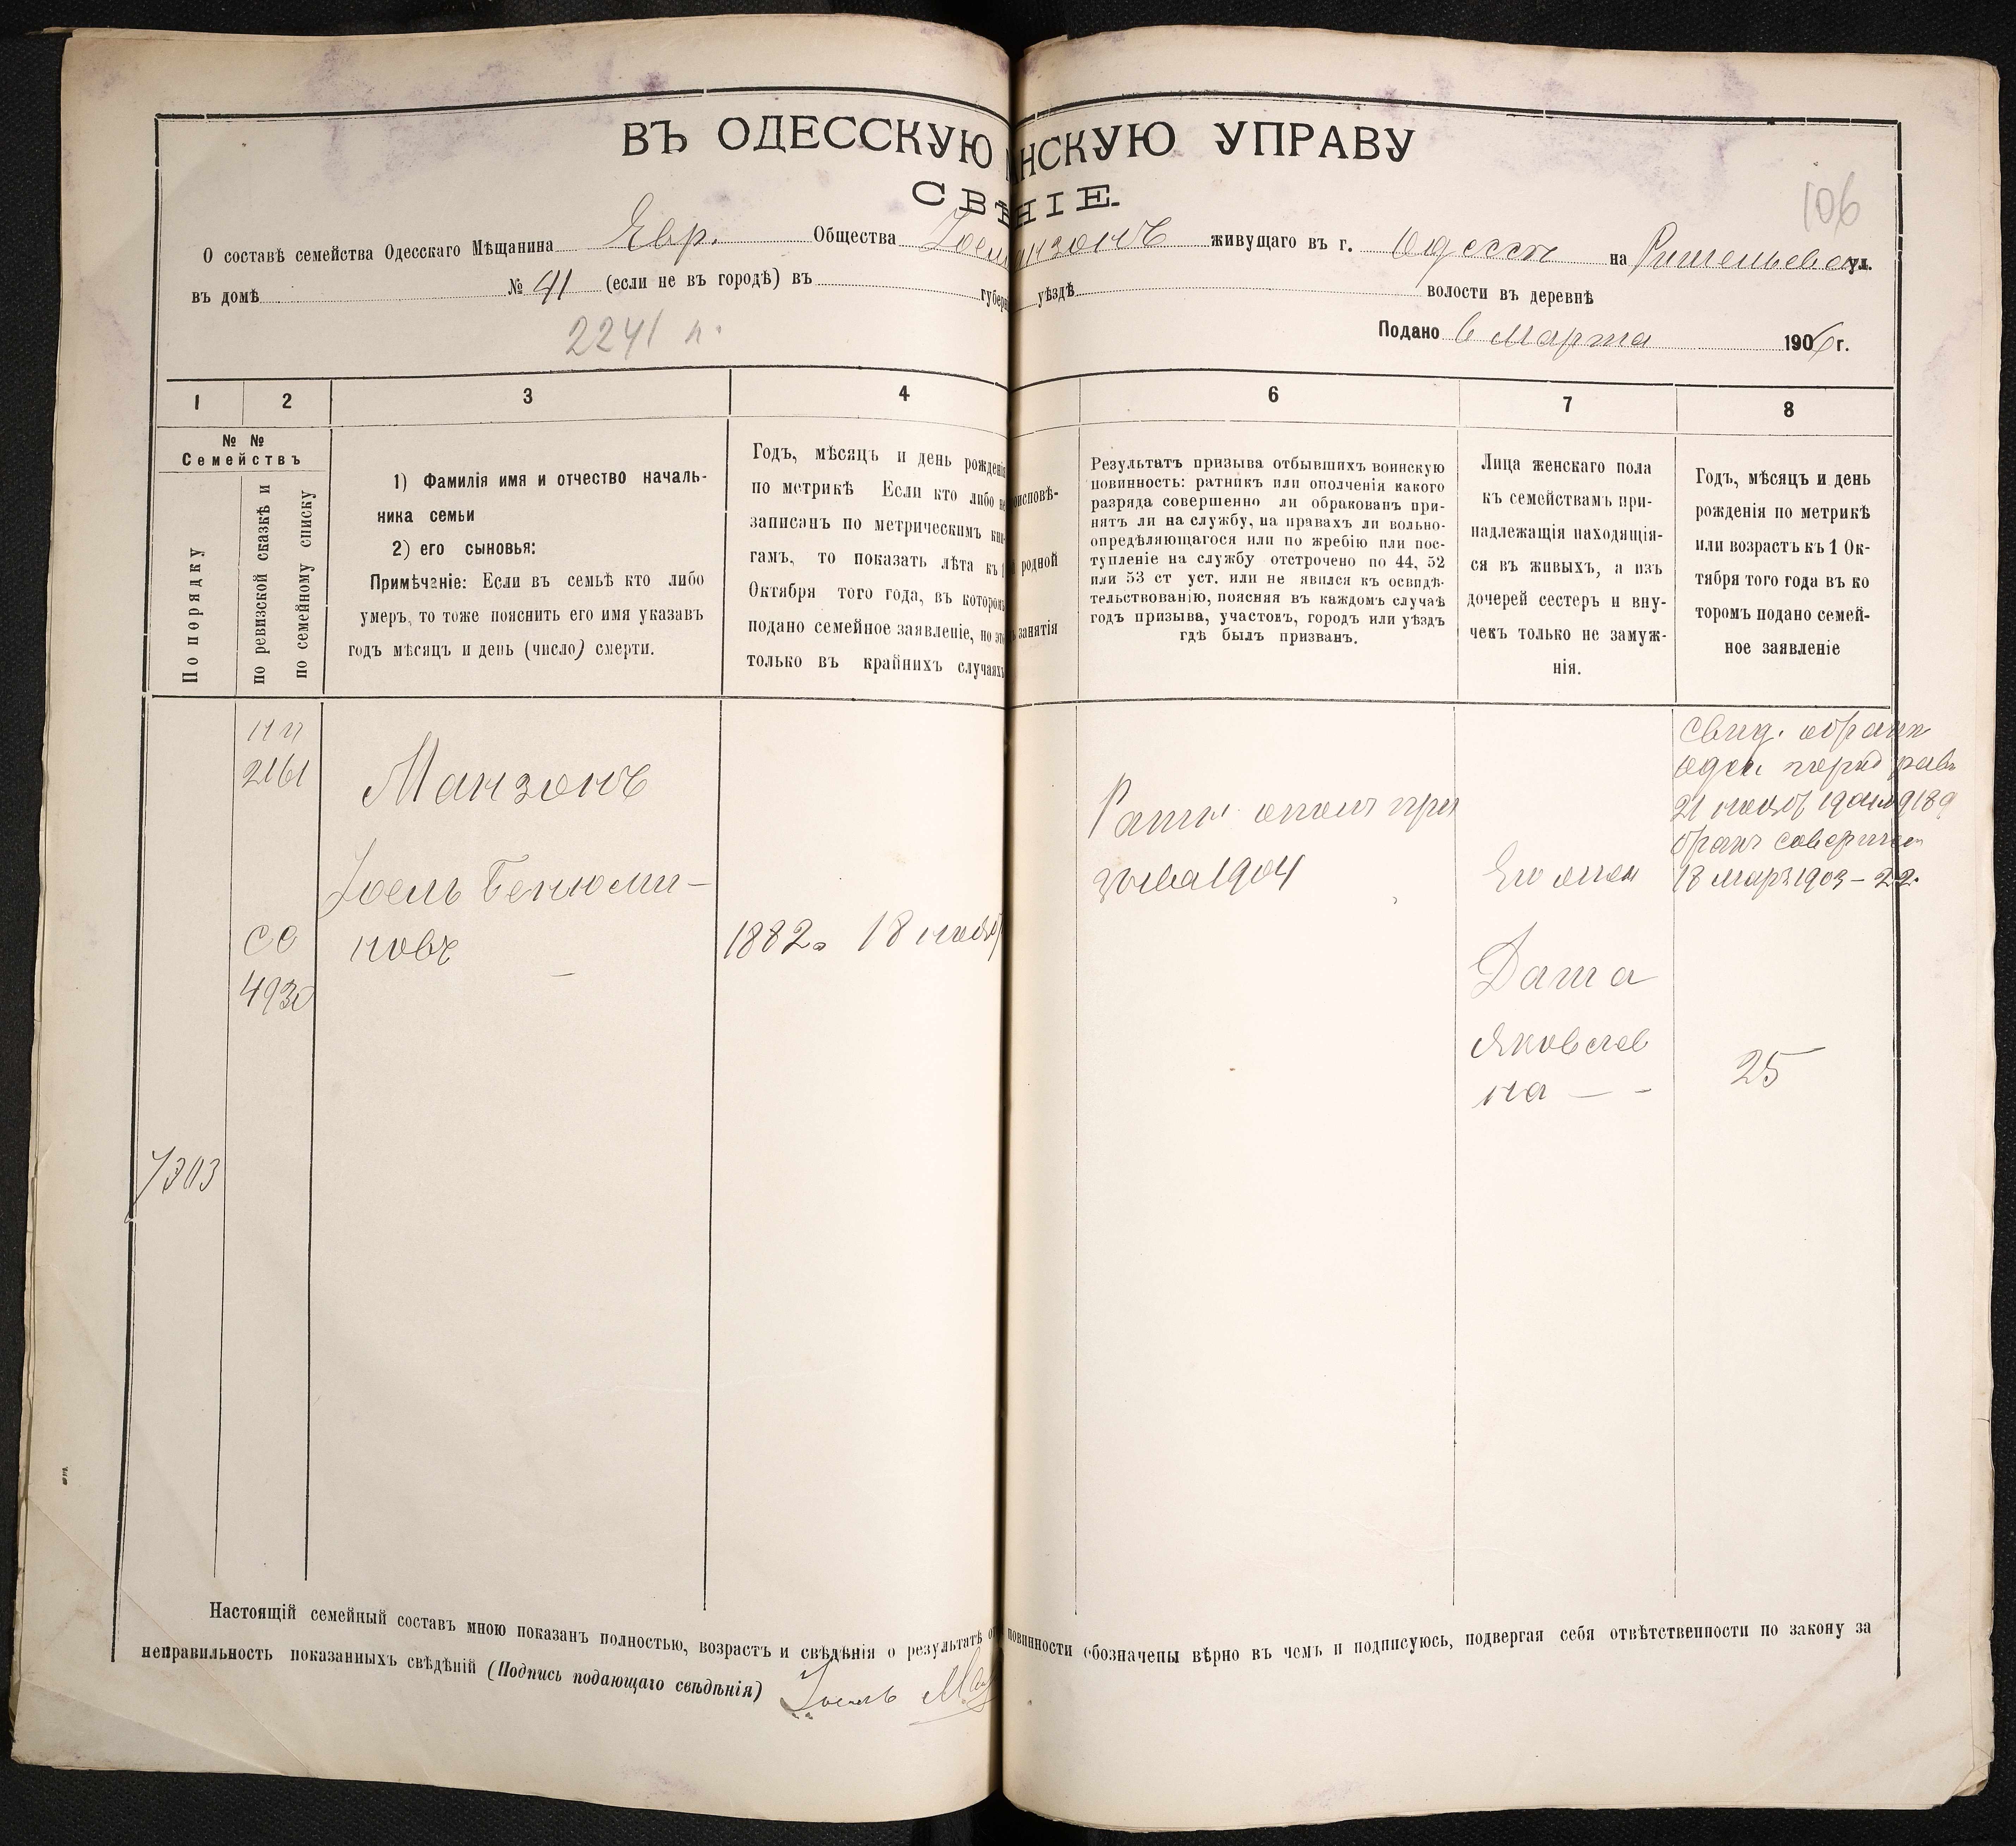 ВЪ ОДЕССКУЮ НСКУЮ УПРАВУ
СВѢНІЕ.
106
О составѣ семейства Одесскаго Мѣщанина Евр. Общества Іоел анзонъ живущаго въ г. Одессѣ на Ришельевск ул.
въ домѣ № 41 (если не въ городѣ) въ губерн уѣздѣ волости въ деревнѣ
2241 п.
Подано 6 Марта 1906 г.
1 2 3 4 6 7 8
№ №
Семействъ
По порядку
по ревизской сказкѣ и
по семейному списку
1) Фамилія имя и отчество началь-
ника семьи
2) его сыновья:
Примѣчаніе: Если въ семьѣ кто либо
умеръ, то тоже пояснить его имя указавъ
годъ мѣсяцъ и день (число) смерти.
Годъ, мѣсяцъ и день рожденія
по метрикѣ Если кто либо не
записанъ по метрическимъ кни-
гамъ, то показать лѣта къ 1
Октября того года, въ которомъ
подано семейное заявленіе, но это
только въ крайнихъ случаяхъ
оисповѣ-
родной
занятія
Результатъ призыва отбывшихъ воинскую
повинность: ратникъ или ополченія какого
разряда совершенно ли обракованъ при-
нятъ ли на службу, на правахъ ли вольно-
опредѣляющагося или по жребію или пос-
тупленіе на службу отстрочено по 44, 52
или 53 ст уст. или не явился къ освидѣ-
тельствованію, поясняя въ каждомъ случаѣ
годъ призыва, участокъ, городъ или уѣздъ
гдѣ былъ призванъ.
Лица женскаго пола
къ семействамъ при-
надлежащія находящія-
ся въ живыхъ, а изъ
дочерей сестеръ и вну-
чекъ только не замуж-
нія.
Годъ, мѣсяцъ и день
рожденія по метрикѣ
или возрастъ къ 1 Ок-
тября того года въ ко
торомъ подано семей-
ное заявленіе
2161
Манзонъ
Іоель Бенюми-
новъ
СС
4930
1882. 18 нояб
Ратн. ополч при
зыва 1904
Его жен
Даша
Яковлев
на
Свид. о брак
Одес. равв
21 нояб
бракъ совершен
18 март 1903 – 22.
25
7303
Настоящій семейный составъ мною показанъ полностью, возрастъ и свѣдѣнія о результатѣ от повинности обозначены вѣрно въ чемъ и подписуюсь, подвергая себя отвѣтственности по закону за
неправильность показанныхъ свѣдѣній (Подпись подающаго свѣдѣнія) Іоель Ман